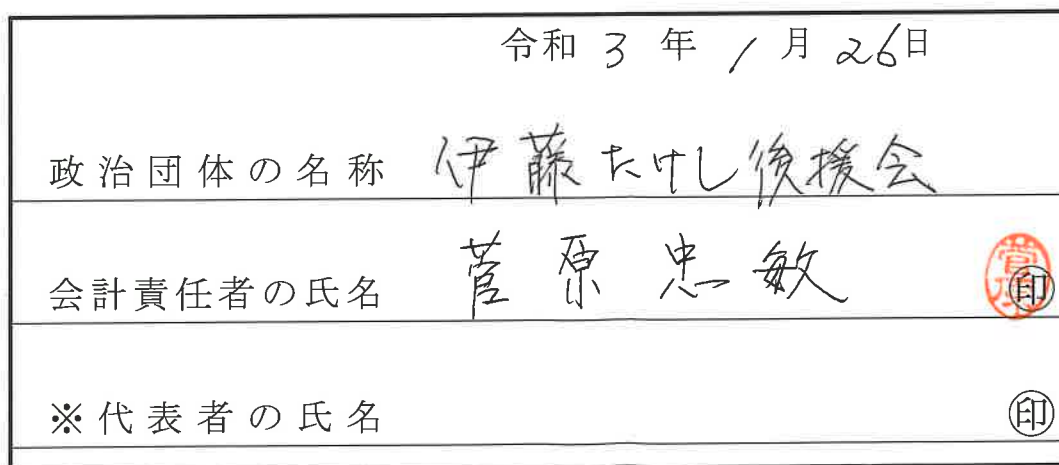 令和3年1月26日
政治団体の名称 伊藤たけし後援会
会計責任者の氏名 菅原忠敏 菅原 ㊞
※代表者の氏名 ㊞